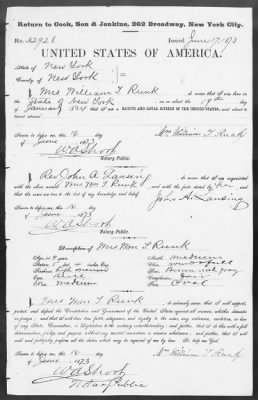 Return to Cook, Son & Jenkins, 262 Broadway, New York City.
No. 32928 Issued June 17, 1873
UNITED STATES OF AMERICA.
State of New York
County of New York } ss
I, Mrs William T Runk do swear that I was born in
State of New York on the 19th day of
January 1824 that I am a NATIVE AND LOYAL CITIZEN OF THE UNITED STATES, and about to
travel abroad.
Sworn to before me, this 16 day Mrs William T. Runk
of June 1873
W A Shook
Notary Public.
I, Rev John A Lansing do swear that I am acquainted
with the above named Mrs Wm T Runk and with the facts stated by her and
Sworn to before me, this 16 day John A. Lansing
of June 1873
W A Shook
Notary Public.
Description of Mrs Wm T Runk
Age: 49 year Mouth: medium
Stature: 5 feet, 4 inches, Eng. Chin:
Forehead: Hair: Brown
Eyes: Complexion:
Nose: medium Face: Oval
I, Mrs Wm T Runk do solemnly swear that I will support,
protect, and defend the Constitution and Government of the United States against all enemies, whether domestic
or foreign; and that I will bear true faith, allegiance, and loyalty to the same, any ordinance, resolution, or law
of any State, Convention, or Legislature to the contrary notwithstanding; and further, that I do this with a full
determination, pledge, and purpose, without any mental reservation or evasion whatsoever; and further, that I will
well and faithfully perform all the duties which may be required of me by law. So help me God.
Sworn to before me, this 16 day Mrs William T. Runk
of June 1873
W A Shook
Notary Public